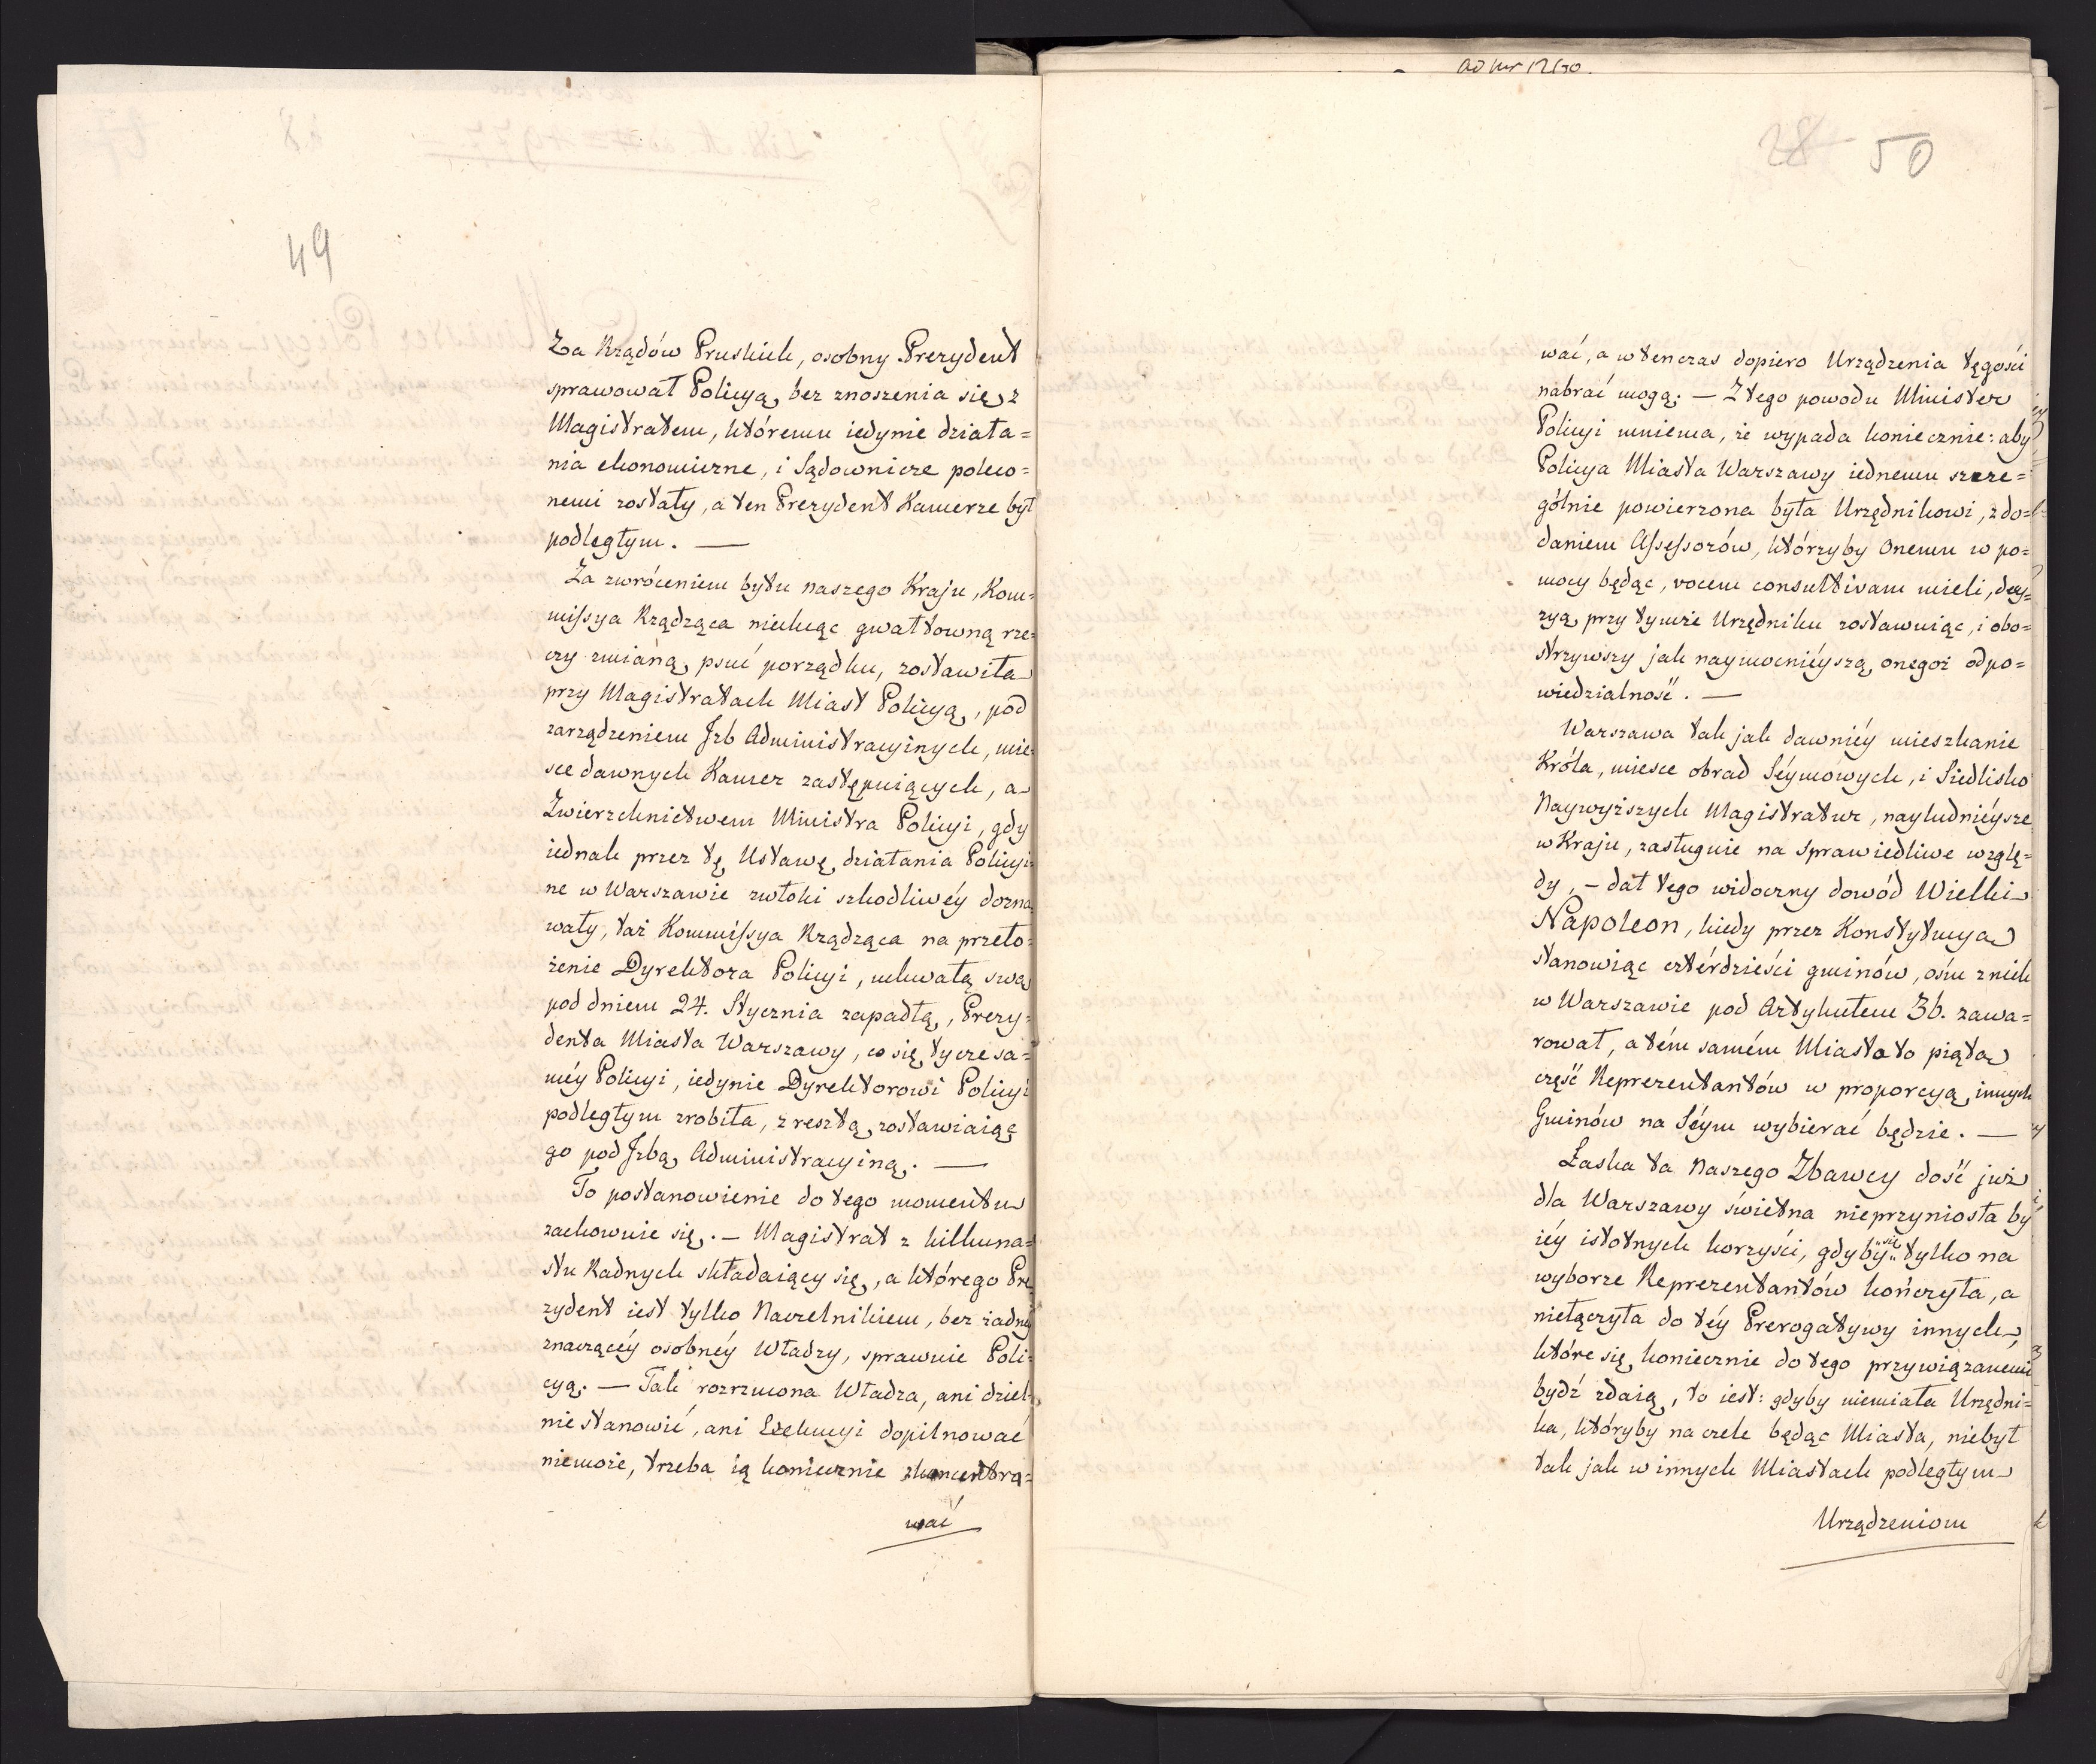 49
Za Rządów Pruskich, osobny Prezydent
sprawował Policyą, bez znoszenia się z
Magistratem, któremu iedynie działa=
nia ekonomiczne, i Sądownicze poleco=
nemi zostały, a ten Prezydent Kamerze był
podległym. —
Za zwróceniem bytu naszego Kraju, Kom=
missya Rządząca niechcąc gwałtowną rze=
czy zmianą, psuć porządku, zostawiła
przy Magistratach Miast Policyą, pod
zarządzeniem Jzb Administracyinych, mie=
sce dawnych Kamer zastępuiących, a
Zwierzchnictwem Ministra Policyi, gdy
iednak przez tę Ustawę, działania Policyi=
ne w Warszawie zwłoki szkodliwéy dozna=
wały, taż Kommissya Rządząca na przeło=
żenie Dyrektora Policyi, uchwałą swą
pod dniem 24. Stycznia zapadłą, Prezy=
denta Miasta Warszawy, co się tycze sa=
méy Policyi, iedynie Dyrektorowi Policyi
podległym zrobiła, z resztą, zostawiaiąc
go pod Jzbą Administracyiną. —
To postanowienie do tego momentu
zachowuie się. — Magistrat z kilkuna=
stu Radnych składaiący się, a którego Pre
zydent iest tylko Naczelnikiem, bez żadnéy
znaczącéy osobnéy Władzy, sprawuie Poli=
cyą. — Tak rozrzucona Władza, ani dziel=
nie stanowić, ani Exekucyi dopilnować
niemoże, trzeba ią koniecznie zkoncentro=
wać
ad Nr 1260.
28 50
wać, a wtenczas dopiero Urządzenia tęgości
nabrać mogą. — Z tego powodu Minister
Policyi mniema, że wypada koniecznie: aby
Policya Miasta Warszawy iednemu szcze=
gólnie powierzona była Urzędnikowi, z do=
daniem Assessorów, którzyby Onemu w po=
mocy będąc, vocem consultivam mieli, decy=
zyą przy tymże Urzędniku zostawuiąc, i obo=
strzywszy jak naymocniéyszą, onegoż odpo=
wiedzialność. —
Warszawa tak jak dawniéy mieszkanie
Króla, miesce obrad Séymowych, i Siedlisko
Naywyższych Magistratur, nayludniéysze
w Kraju, zasługuie na sprawiedliwe wzglę=
dy, — dał tego widoczny dowód Wielki
Napoleon, kiedy przez Konstytucyą
stanowiąc cztérdzieści gminów, ośm z nich
w Warszawie pod Artykułem 36. zawa=
rował, a tém samém Miasto to piątą
część Reprezentantów w proporcyą innych
Gminów na Séym wybierać będzie. —
Łaska ta Naszego Zbawcy dość już
dla Warszawy świetna nieprzyniosła by
iéy istotnych korzyści, gdyby się tylko na
wyborze Reprezentantów kończyła, a
niełączyła do téy Prerogatywy innych,
które się, koniecznie do tego przywiązanemi
bydź zdaią, to iest: gdyby niemiała Urzędni=
ka, któryby na czele będąc Miasta, niebył
tak jak w innych Miastach podległym
Urządzeniom